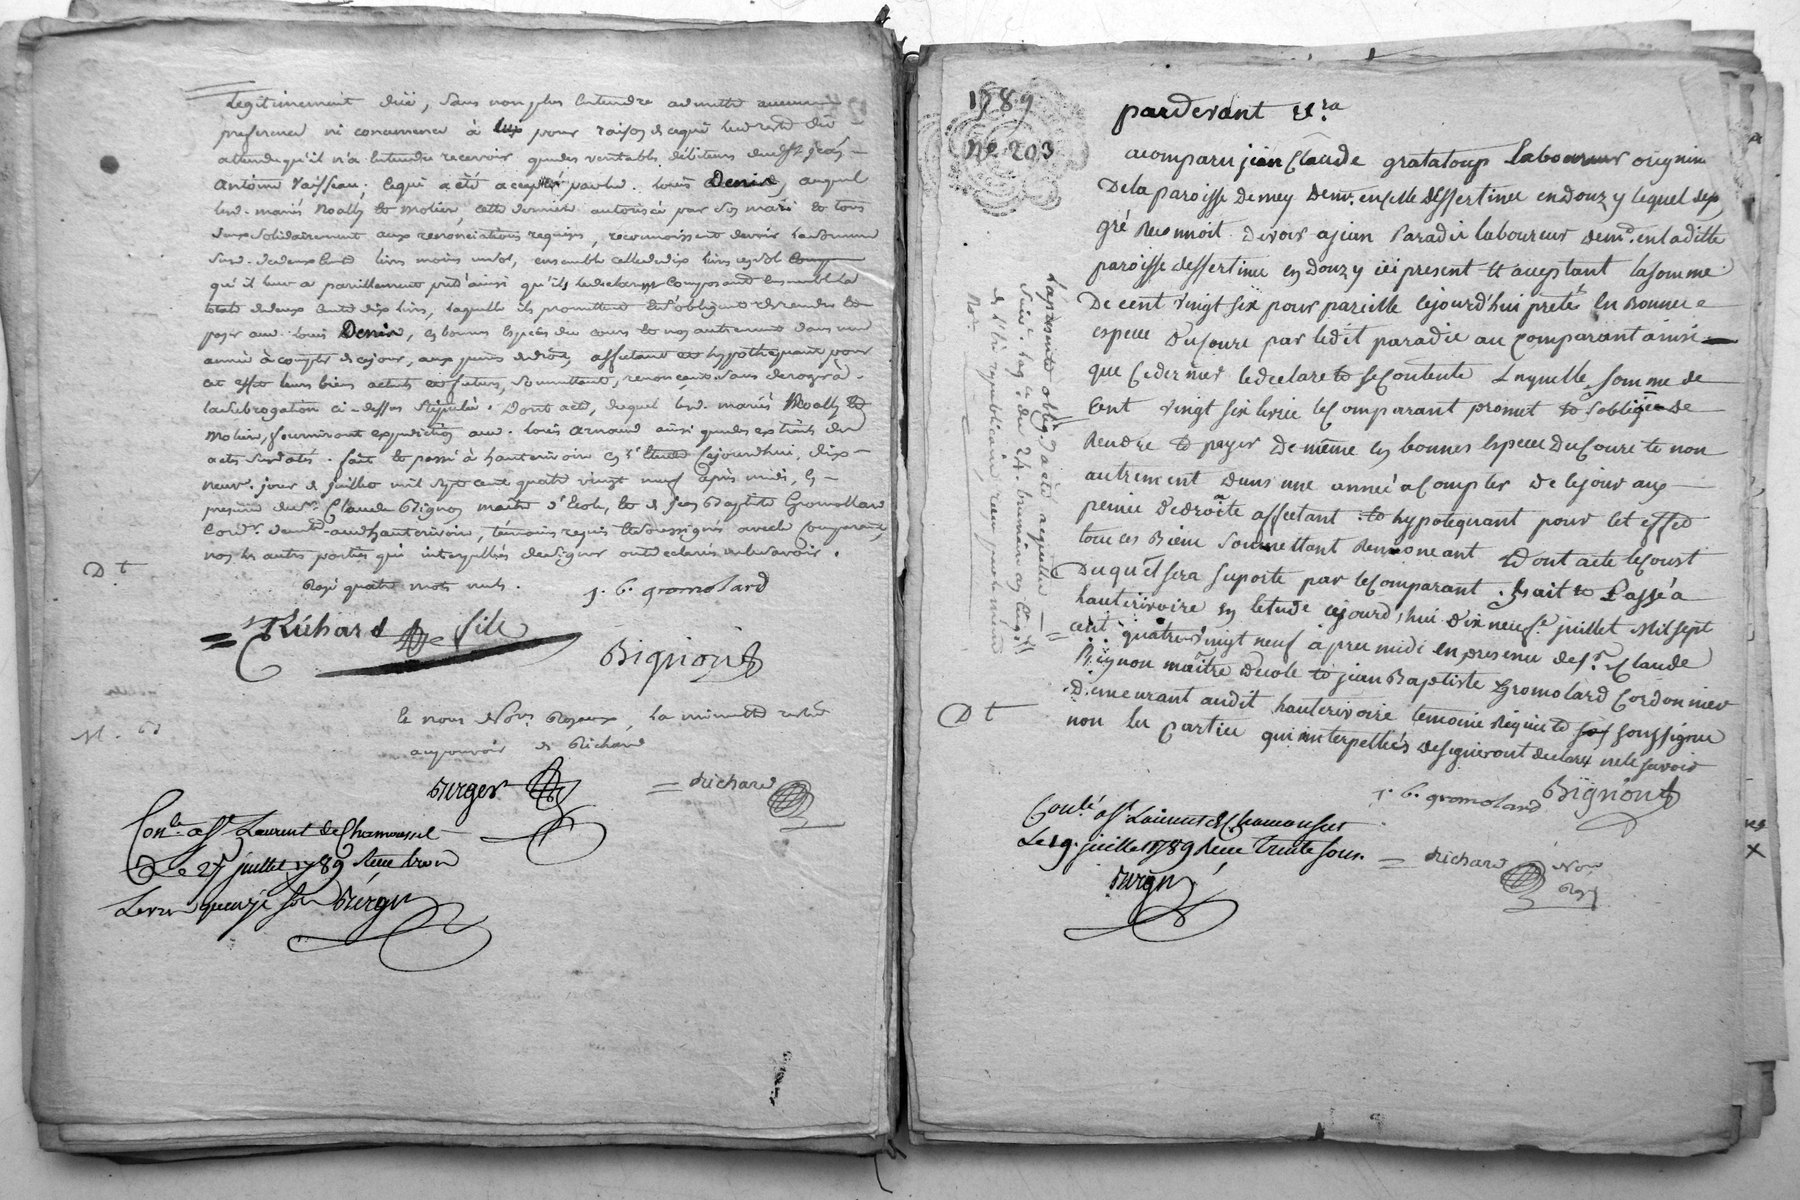 Legitimement düe, sans non plus entendre admettre aucune
preference ni concurrence à lux pour raison de ce qui leur reste dû
attendu qu'il n'a entendu recevoir que des veritables débiteurs dudit Sr jean
antoine Vaisseau. Ce qui a été accepté par led. louis Denis, auquel
les d. mariés Noally et Molier, cette derniere autorisée par son mari et tous
deux solidairement aux renonciations requises, reconnoissent devoir la somme
qu'il leur a pareillement preté ainsi qu'ils le declarent composant ensemble la
totale de deux cent dix livres, laquelle ils promettent et s'obligent de rendre et
payer aud. louis Denis, en bonnes especes du cours et non autrement dans une
année à compter de ce jour, aux peines de droit, affectant et hypothequant pour
cet effet leurs biens actuels et futurs, soumettant, renonçant sans deroger à
la subrogation ci-dessus stipulée. Dont acte, duquel les d. mariés Noally et
Molier, fourniront expedition aud. louis Arnaud ainsi que des extraits des
actes susdatés. fait et passé à hauterivoire en l'etude cejourd'hui, dix-
neuf jour de juillet mil sept cent quatre vingt neuf après midi, en
presence du Sr Claude Bignon maitre d'ecole, et de jean Baptiste Gromollard
cordr. demt. aud hauterivoire, témoins requis et soussignés avec le comparant,
non les autres parties qui interpellées de signer ont declarés ne le savoir.
Rayé quatre mots nuls.
D t
j. b. gromolard
Richard fils
Bignon
Le nous Nore Royaux, la minutte restée
au pouvoir de Richard
Burger
Richard
Conle. assr Laurent de Chamousset
Le 27 juillet 1789 Reçu trois
Livres quinze sols Burger
1789
No 203
pardevant &ra
a comparu jean Claude grataloup laboureur originaire
De la paroisse de mey demt. en celle Dessertines en donzy lequel de son
gré Reconnoit devoir a jean Paradis laboureur demt. en la ditte
paroisse dessertines en donzy ici present et acceptant la somme
De cent vingt six pour pareille cejourd'hui pretée en Bonnes
especes Du Cours par ledit paradis au comparant ainsi
que ce dernier le declare et se contente Laquelle somme de
Cent vingt six livres le comparant promet et s'oblige de
Rendre et payer De même en bonnes especes Du Cours et non
autrement dans une année a compter de ce jour aux
peines de droite affectant et hypotequant pour cet effet
tous ces Biens soumettant Renonceant Dont acte le coust
Duquel sera suporté par le comparant. fait et Passé a
hauterivoire en letude cejourd'hui dix neuf juillet Mil sept
cent quatre vingt neuf après midi en presence de Sr. Claude
Bignon maître decole et jean Baptiste Gromolard Cordonnier
Demeurant audit hauterivoire temoins Requis et soussignés
non les Parties qui interpellées de signer ont declaré ne le savoir
D t
j. b. gromolard
Bignon
Conlé assr Laurent de Chamousset
Le 19. juillet 1789 Reçu trente sous.
Burger
Richard
Nore
Roy
La presente oblig. a été acquittée
suivt. le 24 brumaire an
de l'ere republicaine
Nore